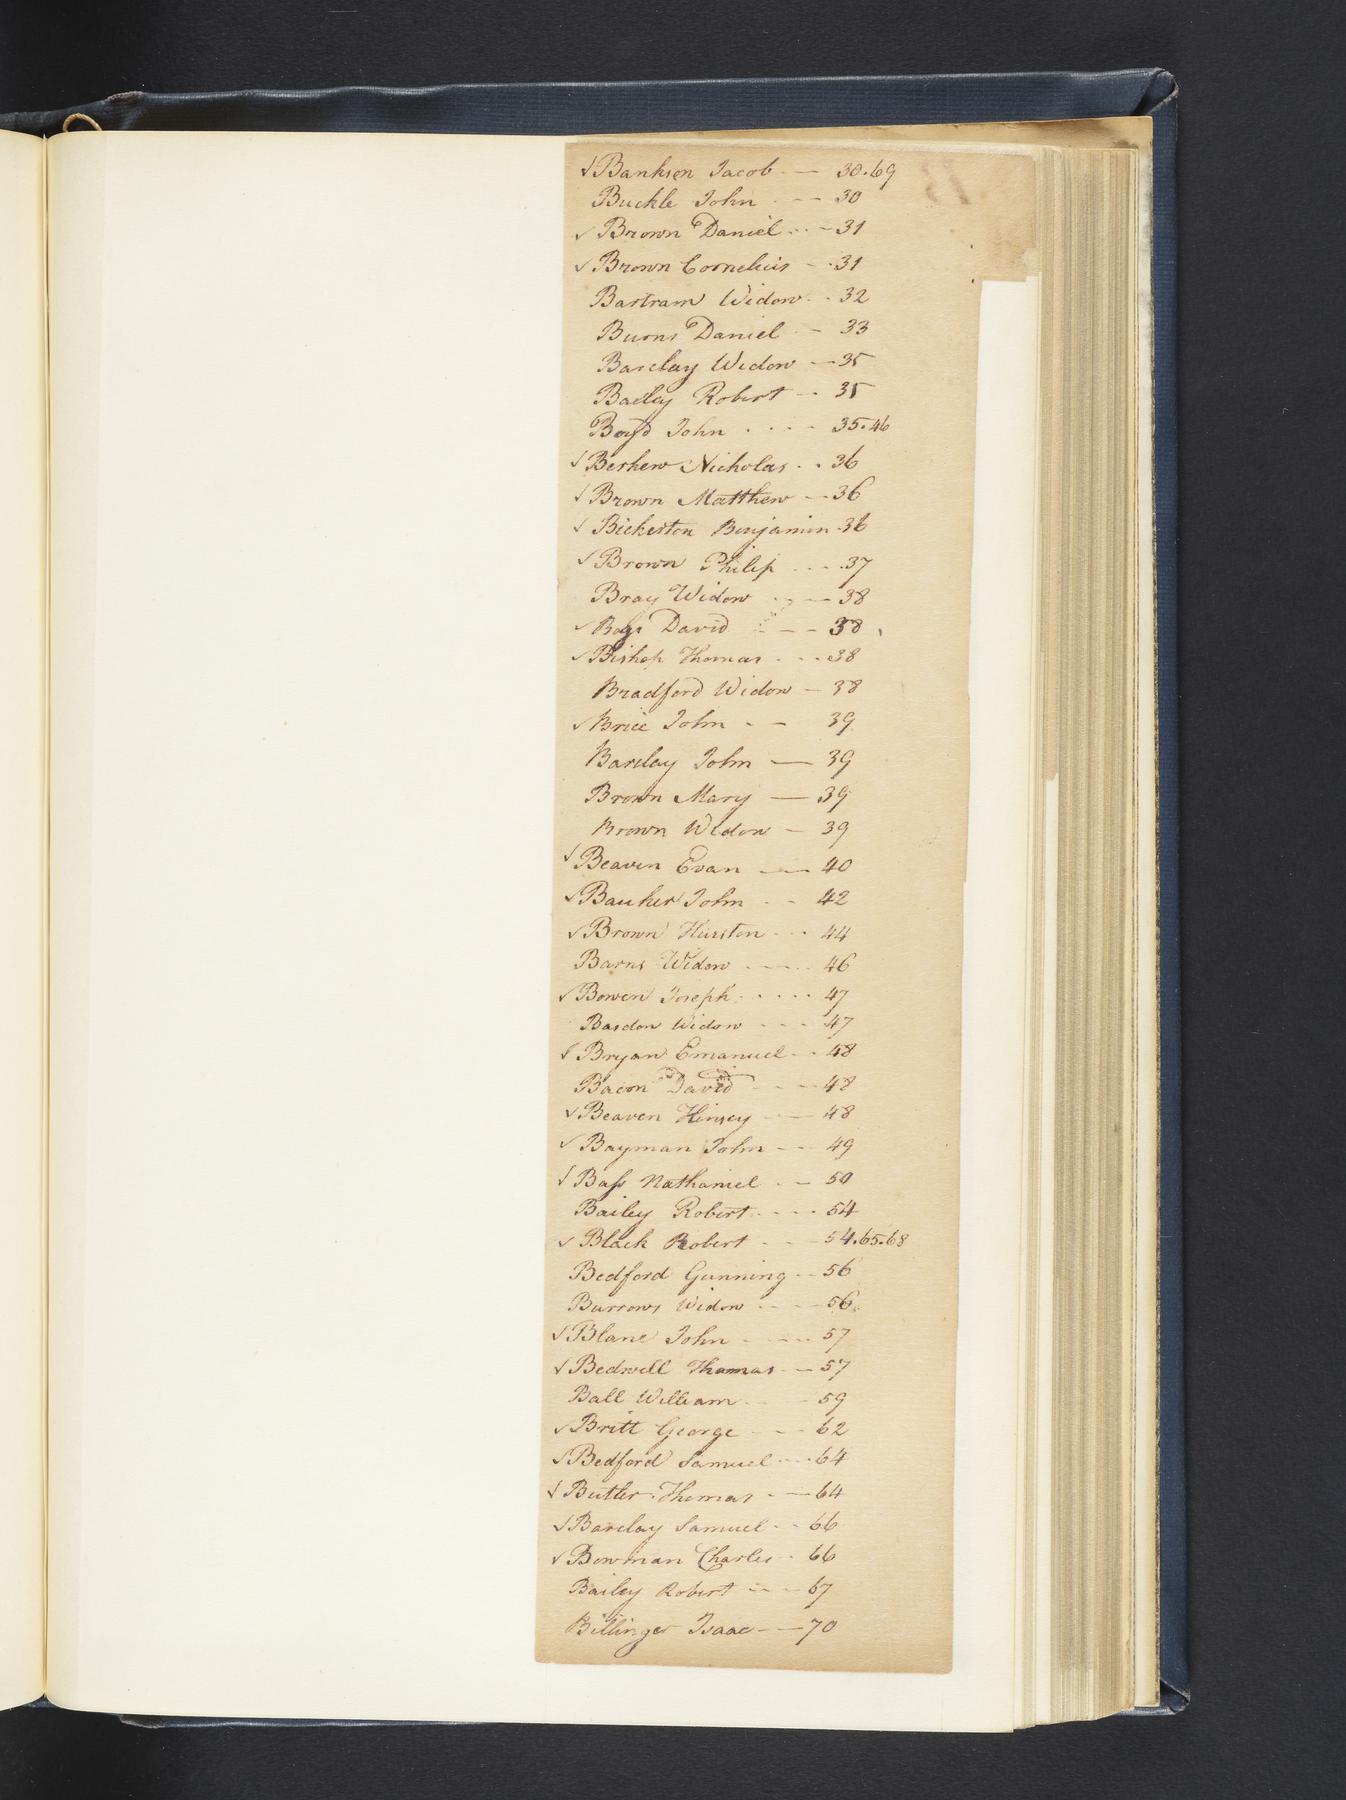 ✓ Banksen Jacob — 30.69
Buckle John - - - 30
✓ Brown Daniel - - - 31
✓ Brown Cornelius - - 31
Bartram Widow - - 32
Burns Daniel - 33
Barclay Widow — 35
Bailey Robert - - 35
Boyd John - - - - 35.46
✓ Berkew Nicholas - - 36
✓ Brown Matthew — 36
✓ Bickerton Benjamin - 36
✓ Brown Philip - - - - 37
Bray Widow - - — 38
✓ Bogs David - - - 38
✓ Bishop Thomas - - - 38
Bradford Widow — 38
✓ Brice John - - 39
Barclay John — 39
Brown Mary — 39
Brown Widow — 39
✓ Beaven Evan — 40
✓ Bauker John - - 42
✓ Brown Hurston - - - 44
Barns Widow - - - - 46
✓ Bowen Joseph - - - - - 47
Basdon Widow - - - 47
✓ Bryan Emanuel - - 48
Bacon David - - - 48
✓ Beaven Hinsey - — 48
✓ Bayman John - - - 49
✓ Bass Nathaniel - - 50
Bailey Robert - - - - 54
✓ Black Robert - - - 54.65.68
Bedford Gunning - - 56
Burrows Widow - - - - 56
✓ Blane John - - - - 57
✓ Bedwell Thomas - — 57
Ball William - - - 59
✓ Britt George - - - 62
✓ Bedford Samuel - - - 64
✓ Butler Thomas - — 64
✓ Barclay Samuel - - 66
✓ Bowman Charles - 66
Bailey Robert - - - 67
Billinger Isaac - — 70